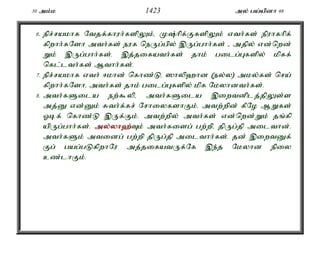 30 அம்ம 1423 அல் பய்யினா 98
6. நிச்சயமாக வேதக்காரர்களிலும், முஷ்ரிக்குகளிலும் எவர்கள் நிராகரிக்
கிறார்களோ அவர்கள் நரக நெருப்பில் இருப்பார்கள் , அதில் என்றென்
றும் இருப்பார்கள். இத்தகையவர்கள் தாம் படைப்புகளில் மிகக்
கெட்டவர்கள் ஆவார்கள்.
7. நிச்சயமாக எவர் ஈமான் கொண்டு, ஸாலிஹான (நல்ல) அமல்கள் செய்
கிறார்களோ, அவர்கள் தாம் படைப்புகளில் மிக மேலானவர்கள்.
8. அவர்களுடைய நற்கூலி, அவர்களுடைய இறைவனிடத்திலுள்ள
அத்னு என்னும் சுவர்க்கச் சோலைகளாகும். அவற்றின் கீழே ஆறுகள்
ஓடிக் கொண்டு இருக்கும். அவற்றில் அவர்கள் என்றென்றும் தங்கி
யிருப்பார்கள். அல்லாஹ்வும் அவர்களைப் பற்றி, திருப்தி அடைவான்.
அவர்களும் அவனைப் பற்றி திருப்தி அடைவார்கள். தன் இறைவனுக்
குப் பயப்படுகிறாரே அத்தகையவருக்கே இந்த மேலான நிலை
உண்டாகும்.